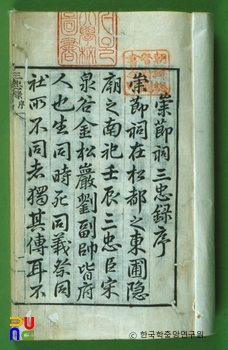 崇節祠三忠錄序
崇節祠在松都之東圃隱
廟之南祀壬辰三忠臣宋
泉谷金松巖劉副帥皆府
人也生同時死同義祭同
社所不同者獨其傳耳不
三忠錄序
圖書
ⓒ 한국학중앙연구원